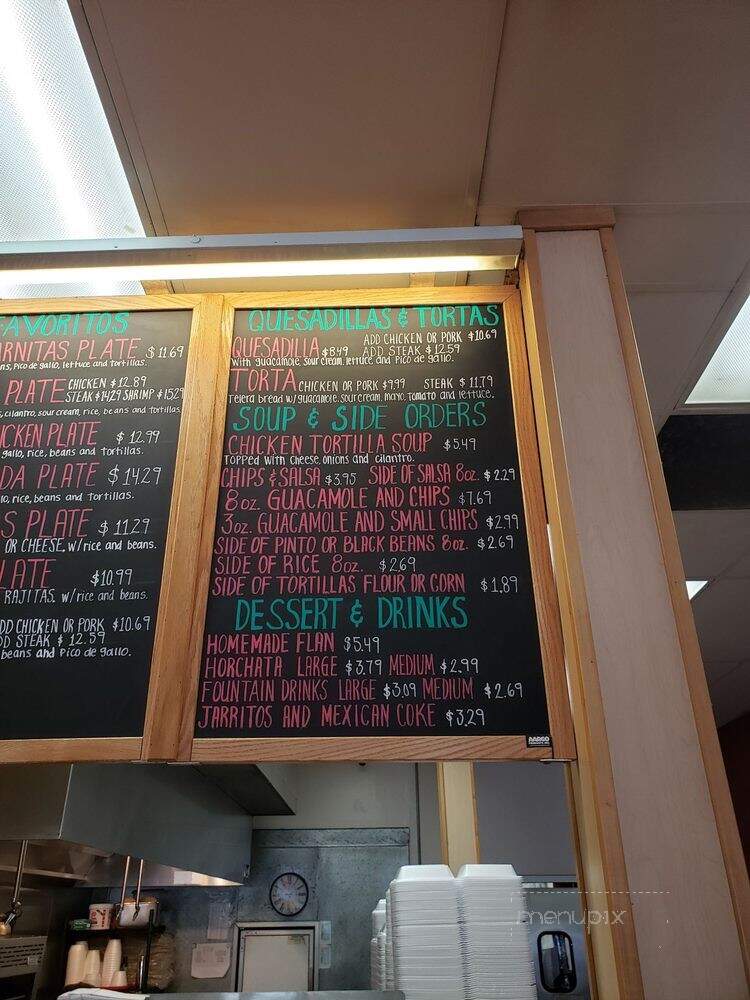 FAVORITOS
ARNITAS PLATE $11.69
ns, Pico de gallo, lettuce and tortillas.
PLATE CHICKEN $12.89
STEAK $14.29 SHRIMP $15.29
s, cilantro, sour cream, rice, beans and tortillas.
ICKEN PLATE $12.99
gallo, rice, beans and tortillas.
DA PLATE $14.29
lo, rice, beans and tortillas.
S PLATE $11.29
OR CHEESE. w/rice and beans.
LATE $10.99
RAJITAS. w/rice and beans.
DD CHICKEN OR PORK $10.69
DD STEAK $12.59
beans and Pico de gallo.
QUESADILLAS & TORTAS
QUESADILLA $8.49 ADD CHICKEN OR PORK $10.69
ADD STEAK $12.59
With guacamole, Sour Cream, lettuce and Pico de gallo.
TORTA CHICKEN OR PORK $9.99 STEAK $11.79
Telera bread w/guacamole, sour cream, mayo, tomato and lettuce.
SOUP & SIDE ORDERS
CHICKEN TORTILLA SOUP $5.49
TOPPED With Cheese, onions and cilantro.
CHIPS & SALSA $3.95 SIDE OF SALSA 8oz. $2.29
8oz. GUACAMOLE AND CHIPS $7.69
3oz. GUACAMOLE AND SMALL CHIPS $2.99
SIDE OF PINTO OR BLACK BEANS 8oz. $2.69
SIDE OF RICE 8oz. $2.69
SIDE OF TORTILLAS FLOUR OR CORN $1.89
DESSERT & DRINKS
HOMEMADE FLAN $5.49
HORCHATA LARGE $3.79 MEDIUM $2.99
FOUNTAIN DRINKS LARGE $3.09 MEDIUM $2.69
JARRITOS AND MEXICAN COKE $3.29
AARCO
menupix